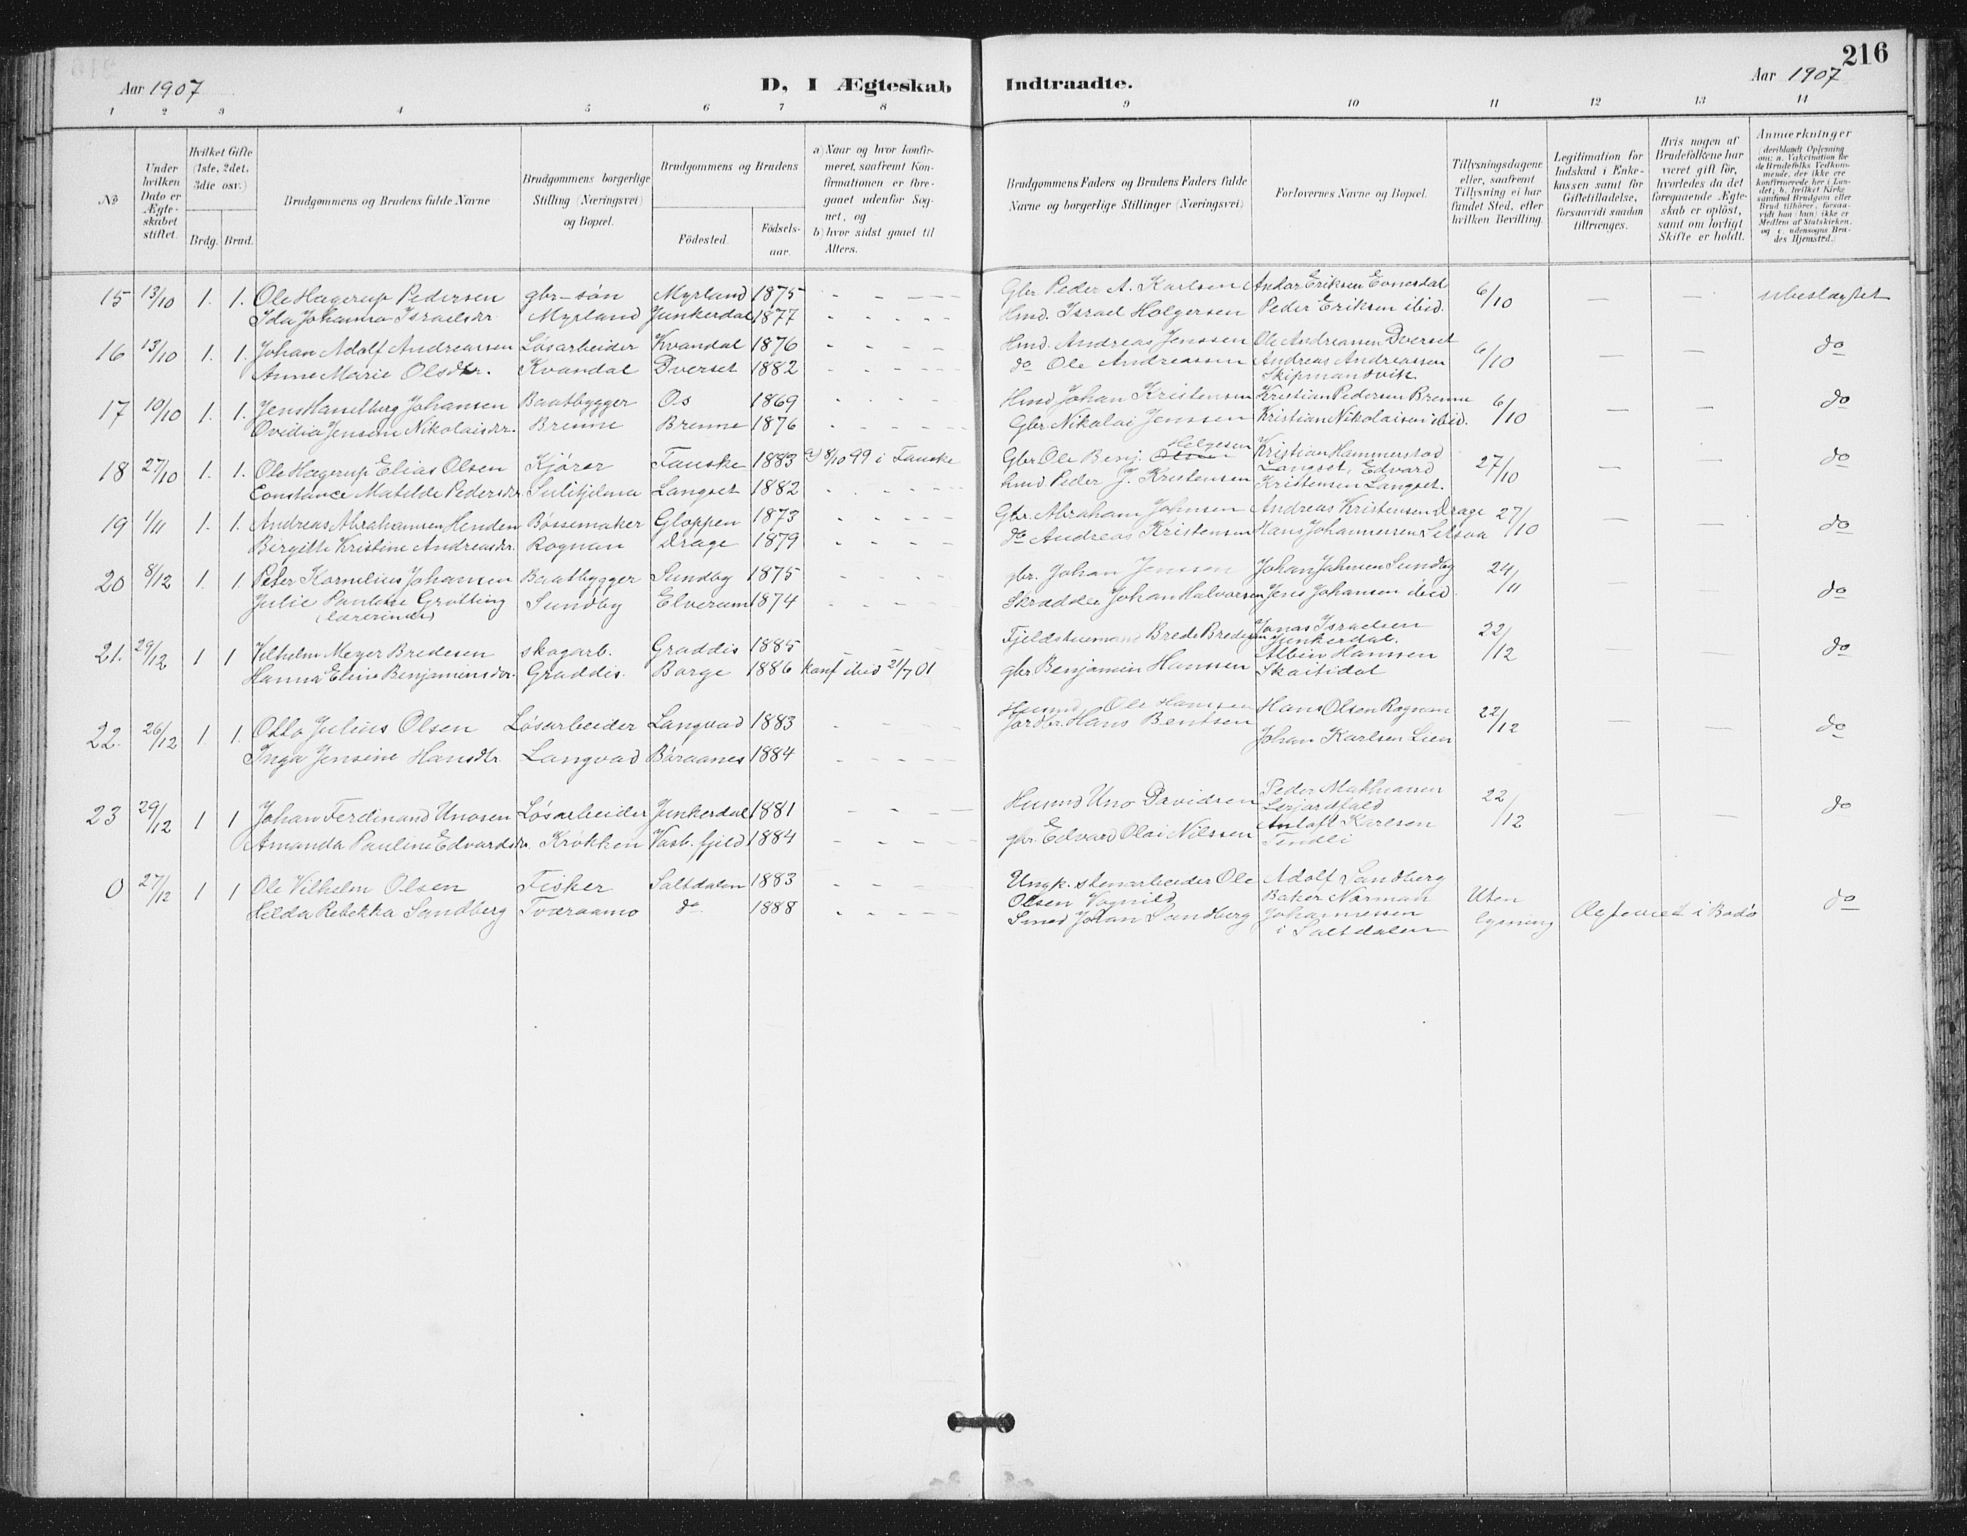 216
Aar 1907 D, I Ægteskab Indtraadte. Aar 1907
1 2 3 4 5 6 7 8 9 10 11 12 13 14
No
Under hvilken Dato er Ægteskabet stiftet.
Hvilket Gifte (1ste, 2det, 3die osv.)
Brdg. Brud.
Brudgommens og Brudens fulde Navne
Brudgommens borgerlige Stilling (Næringsvei) og Bopæl.
Brudgommens og Brudens
Fødested. Fødselsaar.
a) Naar og hvor konfirmeret, saafremt Konfirmationen er foregaaet udenfor Sognet, og
b) hvor sidst gaaet til Alters.
Brudgommens Faders og Brudens Faders fulde Navne og borgerlige Stillinger (Næringsvei)
Forlovernes Navne og Bopæl.
Tillysningsdagene eller, saafremt Tillysning ei har fundet Sted, efter hvilken Bevilling.
Legitimation for Indskud i Enkekassen samt for Giftetilladelse, forsaavidt saadan tiltrænges.
Hvis nogen af Brudefolkene har været gift før, hvorledes da det foregaaende Ægteskab er opløst, samt om lovligt Skifte er holdt.
Anmærkninger (deriblandt Oplysning om: a. Vakcination for de Brudefolks Vedkommende, der ikke ere konfirmerede her i Landet; b. hvilket Kirkesamfund Brudgom eller Brud tilhører, forsaavidt han (hun) ikke er Medlem af Statskirken, og c. udensogns Brudes Hjemsted.)
15 13/10 1. 1. Ole Hagerup Pedersen gbr-søn Myrland 1875 - - - - - Gbr Peder A. Karlsen Andor Eriksen Evnesdal 6/10 — — ubeslægtet
Ida Johanna Israelsdr Myrland Junkerdal 1877 - - - - - Hmd. Israel Holgersen Peder Eriksen ibid.
16 13/10 1. 1. Johan Adolf Andreassen Løsarbeider Kvandal 1876 - - - - - Hmd. Andreas Jenssen Ole Andreassen Dverset 6/10 — — do
Anne Marie Olsdtr. Kvandal Dverset 1882 - - - - - do Ole Andreassen Andreas Andreassen
Skipmandvik
17 10/10 1. 1. Jens Hasselburg Johansen Baatbygger Os 1869 - - - - - Hmd Johan Kristensen Kristian Pedersen Brenne 6/10 — — do
Ovidia Jensine Nikolaisdr. Brenne Brenne 1876 - - - - - Gbr. Nikolai Jenssen Kristian Nikolaisen ibid.
18 27/10 1. 1. Ole Hagerup Elias Olsen Kjører Fauske 1883 a) 8/10 99 i Fauske Gbr Ole Benj. Olsen Helgesen Kristian Hammerstad 27/10 — — do
Constance Matilde Pedersdr. Sulitjelma Langset 1882 - - - - - hmd Peder J. Kristensen Langset, Edvard
Kristensen Langset.
19 1/11 1. 1. Andreas Abrahamsen Henden Bøssemaker Gloppen 1873 - - - - - Gbr. Abraham Johnsen Andreas Kristensen Drage 27/10 — — do
Birgitte Kristine Andreasdr. Rognan Drage 1879 - - - - - do Andreas Kristensen Hans Johannessen Leksva
20 8/12 1. 1 Peter Kornelius Johansen Baatbygger Sundby 1875 - - - - gbr. Johan Jenssen Johan Johnsen Sundby 24/11 — — do
Julie Pauline Grøtting Sundby Elverum 1874 - - - - Skrædder Johan Halvorsen Jens Johansen ibid.
(lærerinde)
21. 29/12 1 1 Vilhelm Meyer Bredesen skogarb. Graddis 1885 - - - - Fjeldstuemand Brede Bredesen Jonas Israelsen 22/12 do
Junkerdal.
Hanna Eline Benjaminsdr. Graddis. Borge 1886 konf ibid 21/7 01 gbr Benjamin Hanssen Albin Hansen
Skaitidal
22. 26/12 1 1. Otto Julius Olsen Løsarbeider Langvad 1883 - - - - Husmd Ole Hanssen Hans Olsen Rognan 22/12 — — do
Inga Jensine Hansdtr. Langvad Boraanes 1884 - - - - Jordbr. Hans Bentsen Johan Karlsen Lien
23 29/12 1 1 Johan Ferdinand Unosen Løsarbeider Junkerdal 1881 - - - Husmd Uno Davidsen Peder Mathiassen 22/12 — — do
Amanda Pauline Edvardsdr. Krokken Vasb.fjeld 1884 - - - - gbr. Edvard Olai Nilssen Anlaft Karlsen
Tindli
0 27/12 1 1 Ole Vilhelm Olsen Fisker Saltdalen 1883 Ungk. stenarbeider Ole Adolf Sandberg
Hilda Rebekka Sandberg Tværaamo do 1888 - - - - Olsen Vognild Baker Norman Uten do
Smed Johan Sandberg Johannessen lysning i Bodø
i Saltdalen